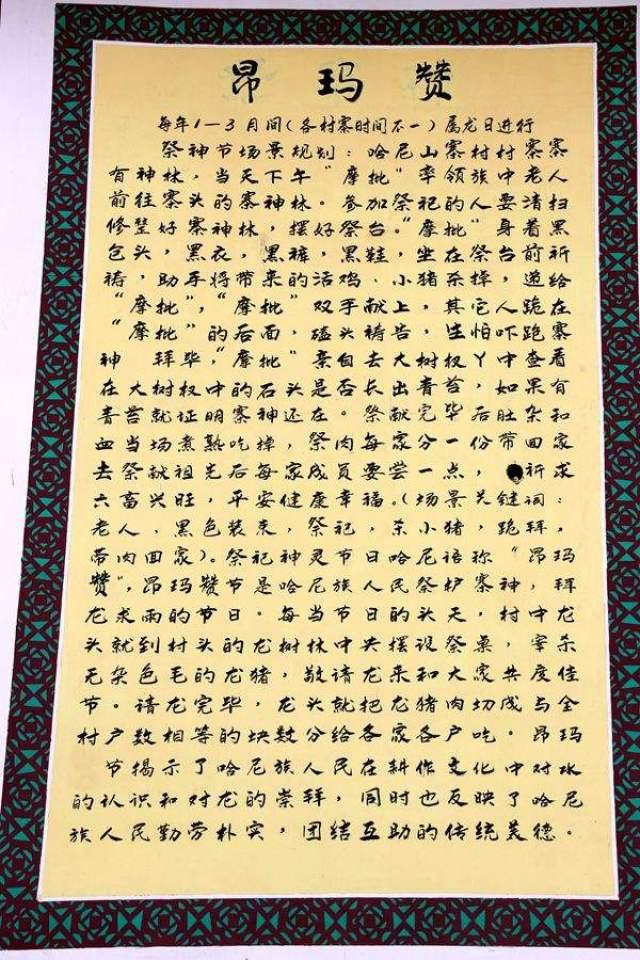 昂玛赞
每年1—3月间(各村寨时间不一)属龙日进行
祭神节场景规划：哈尼山寨村村寨寨
有神林，当天下午“摩批”率领族中老人
前往寨头的寨神林。参加祭祀的人要清扫
修整好寨神林，摆好祭台。“摩批”身着黑
包头，黑衣，黑裤，黑鞋，坐在祭台前祈
祷，助手将带来的活鸡、小猪杀掉，递给
“摩批”，“摩批”双手献上，其它人跪在
“摩批”的后面，磕头祷告，生怕吓跑寨
神 拜毕，“摩批”亲自去大树杈丫中查看
在大树杈中的石头是否长出青苔，如果有
青苔就证明寨神还在。祭献完毕后肚杂和
血当场煮熟吃掉，祭肉每家分一份带回家
去祭献祖先后每家成员要尝一点，祈求
六畜兴旺，平安健康幸福。(场景关键词：
老人、黑色装束，祭祀，杀小猪，跪拜，
带肉回家)。祭祀神灵节日哈尼语称“昂玛
赞”，昂玛赞节是哈尼族人民祭护寨神，拜
龙求雨的节日。每当节日的头天，村中龙
头就到村头的龙树林中央摆设祭桌，宰杀
无杂色毛的龙猪，敬请龙来和大家共度佳
节。请龙完毕，龙头就把龙猪肉切成与全
村户数相等的块数分给各家各户吃。昂玛
节揭示了哈尼族人民在耕作文化中对水
的认识和对龙的崇拜，同时也反映了哈尼
族人民勤劳朴实，团结互助的传统美德。